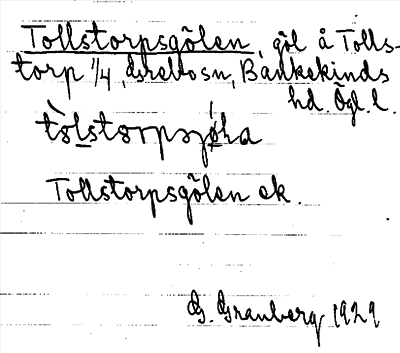 Tollstorpsgölen, göl å Tolls-
torp 1/4, Grebo sn, Bankekinds
hd. Ögl. l.
Tollstorpsgölen ek.
G. Granberg 1929